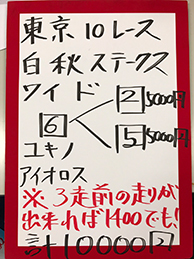 東京10レース
白秋ステークス
ワイド
2 5000円
6
5 5000円
ユキノ
アイオロス
※3走前の走りが
出来れば1400でも!
計10000円